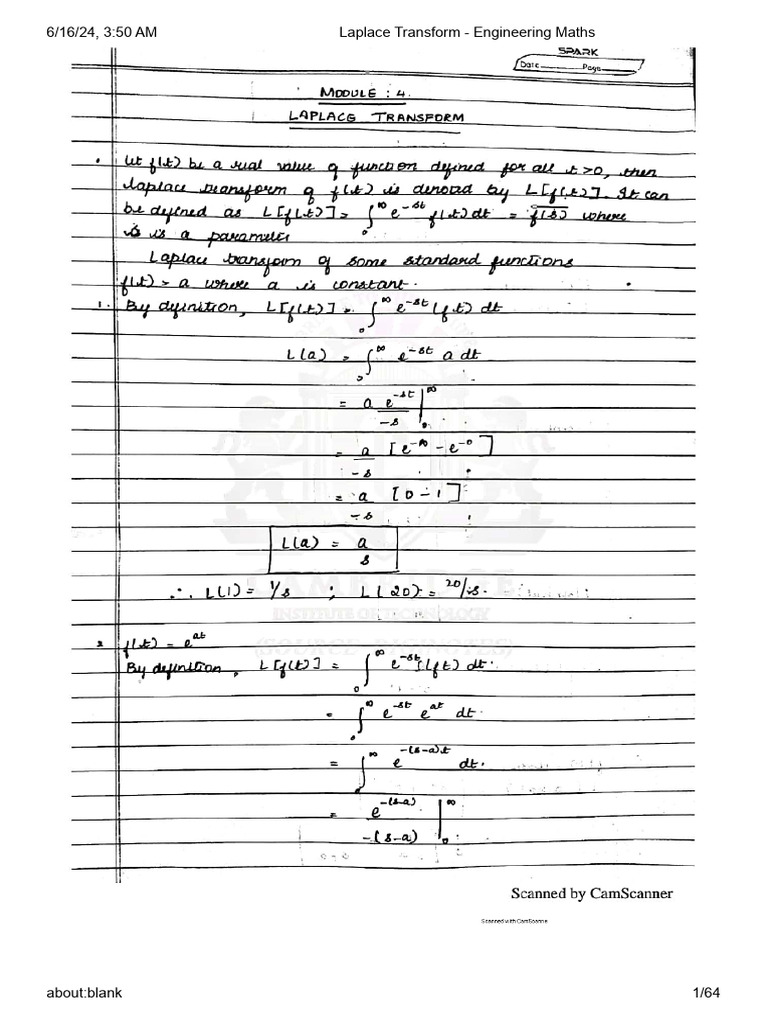 6/16/24, 3:50 AM Laplace Transform - Engineering Maths
SPARK
Date Page
MODULE : 4.
LAPLACE TRANSFORM
• Let f(t) be a real value of function defined for all t>0, then
laplace transform of f(t) is denoted by L[f(t)]. It can
be defined as L[f(t)] = ∫₀^∞ e^{-st} f(t) dt = \overline{f(s)} where
's' is a parameter
Laplace transform of some standard functions
f(t) = a where a is constant.
1. By definition, L[f(t)] = ∫₀^∞ e^{-st} (f(t) dt
L(a) = ∫₀^∞ e^{-st} a dt
= a e^{-st}/-s |₀^∞
= a/-s [e^{-∞} - e^{-0}]
= a/-s [0-1]
L(a) = a/s
∴ L(1) = 1/s ; L(20) = 20/s.
CAMBRIDGE
INSTITUTE OF TECHNOLOGY
(SOURCE DIGINOTES)
2 f(t) = e^{at}
By definition, L[f(t)] = ∫₀^∞ e^{-st} f(t) dt.
= ∫₀^∞ e^{-st} e^{at} dt.
= ∫₀^∞ e^{-(s-a)t} dt.
= e^{-(s-a)}/-(s-a) |₀^∞
Scanned by CamScanner
Scanned with CamScanne
about:blank 1/64